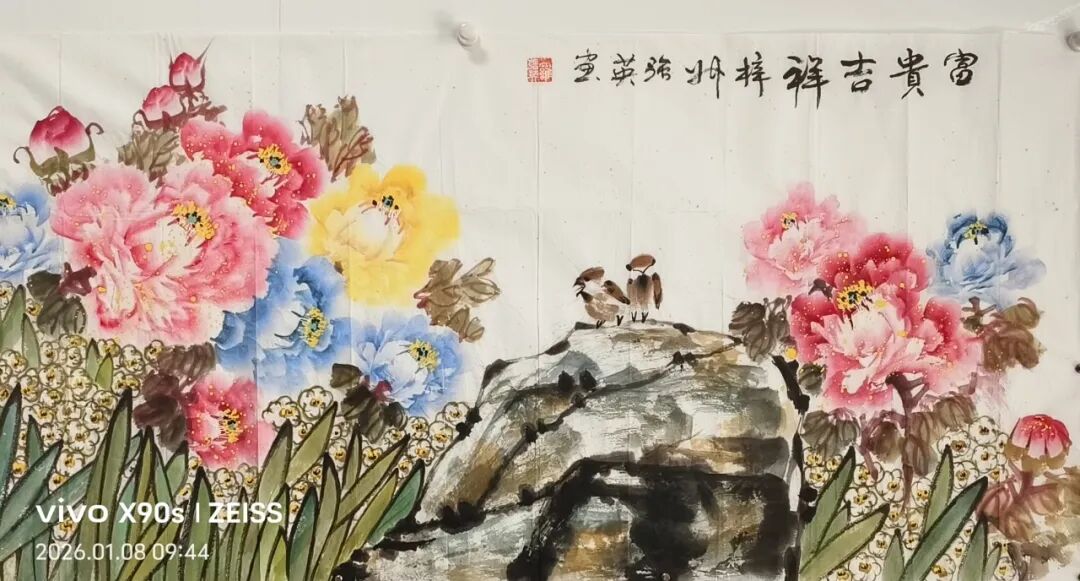 富貴吉祥梓州强英畫
vivo X90s | ZEISS
2026.01.08 09:44